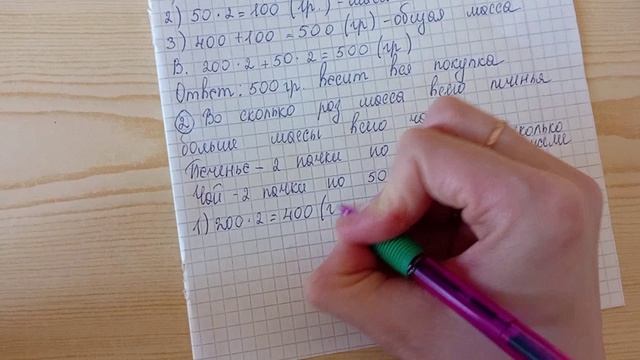 2) 50·2=100 (гр.) -
3) 400+100=500 (гр) - общая масса
В. 200·2+50·2=500 (гр)
Ответ: 500гр. весит вся покупка
② Во сколько раз масса всего печенья
больше массы всего
Печенье - 2 пачки по
Чай - 2 пачки по 50
1) 200·2=400 (г